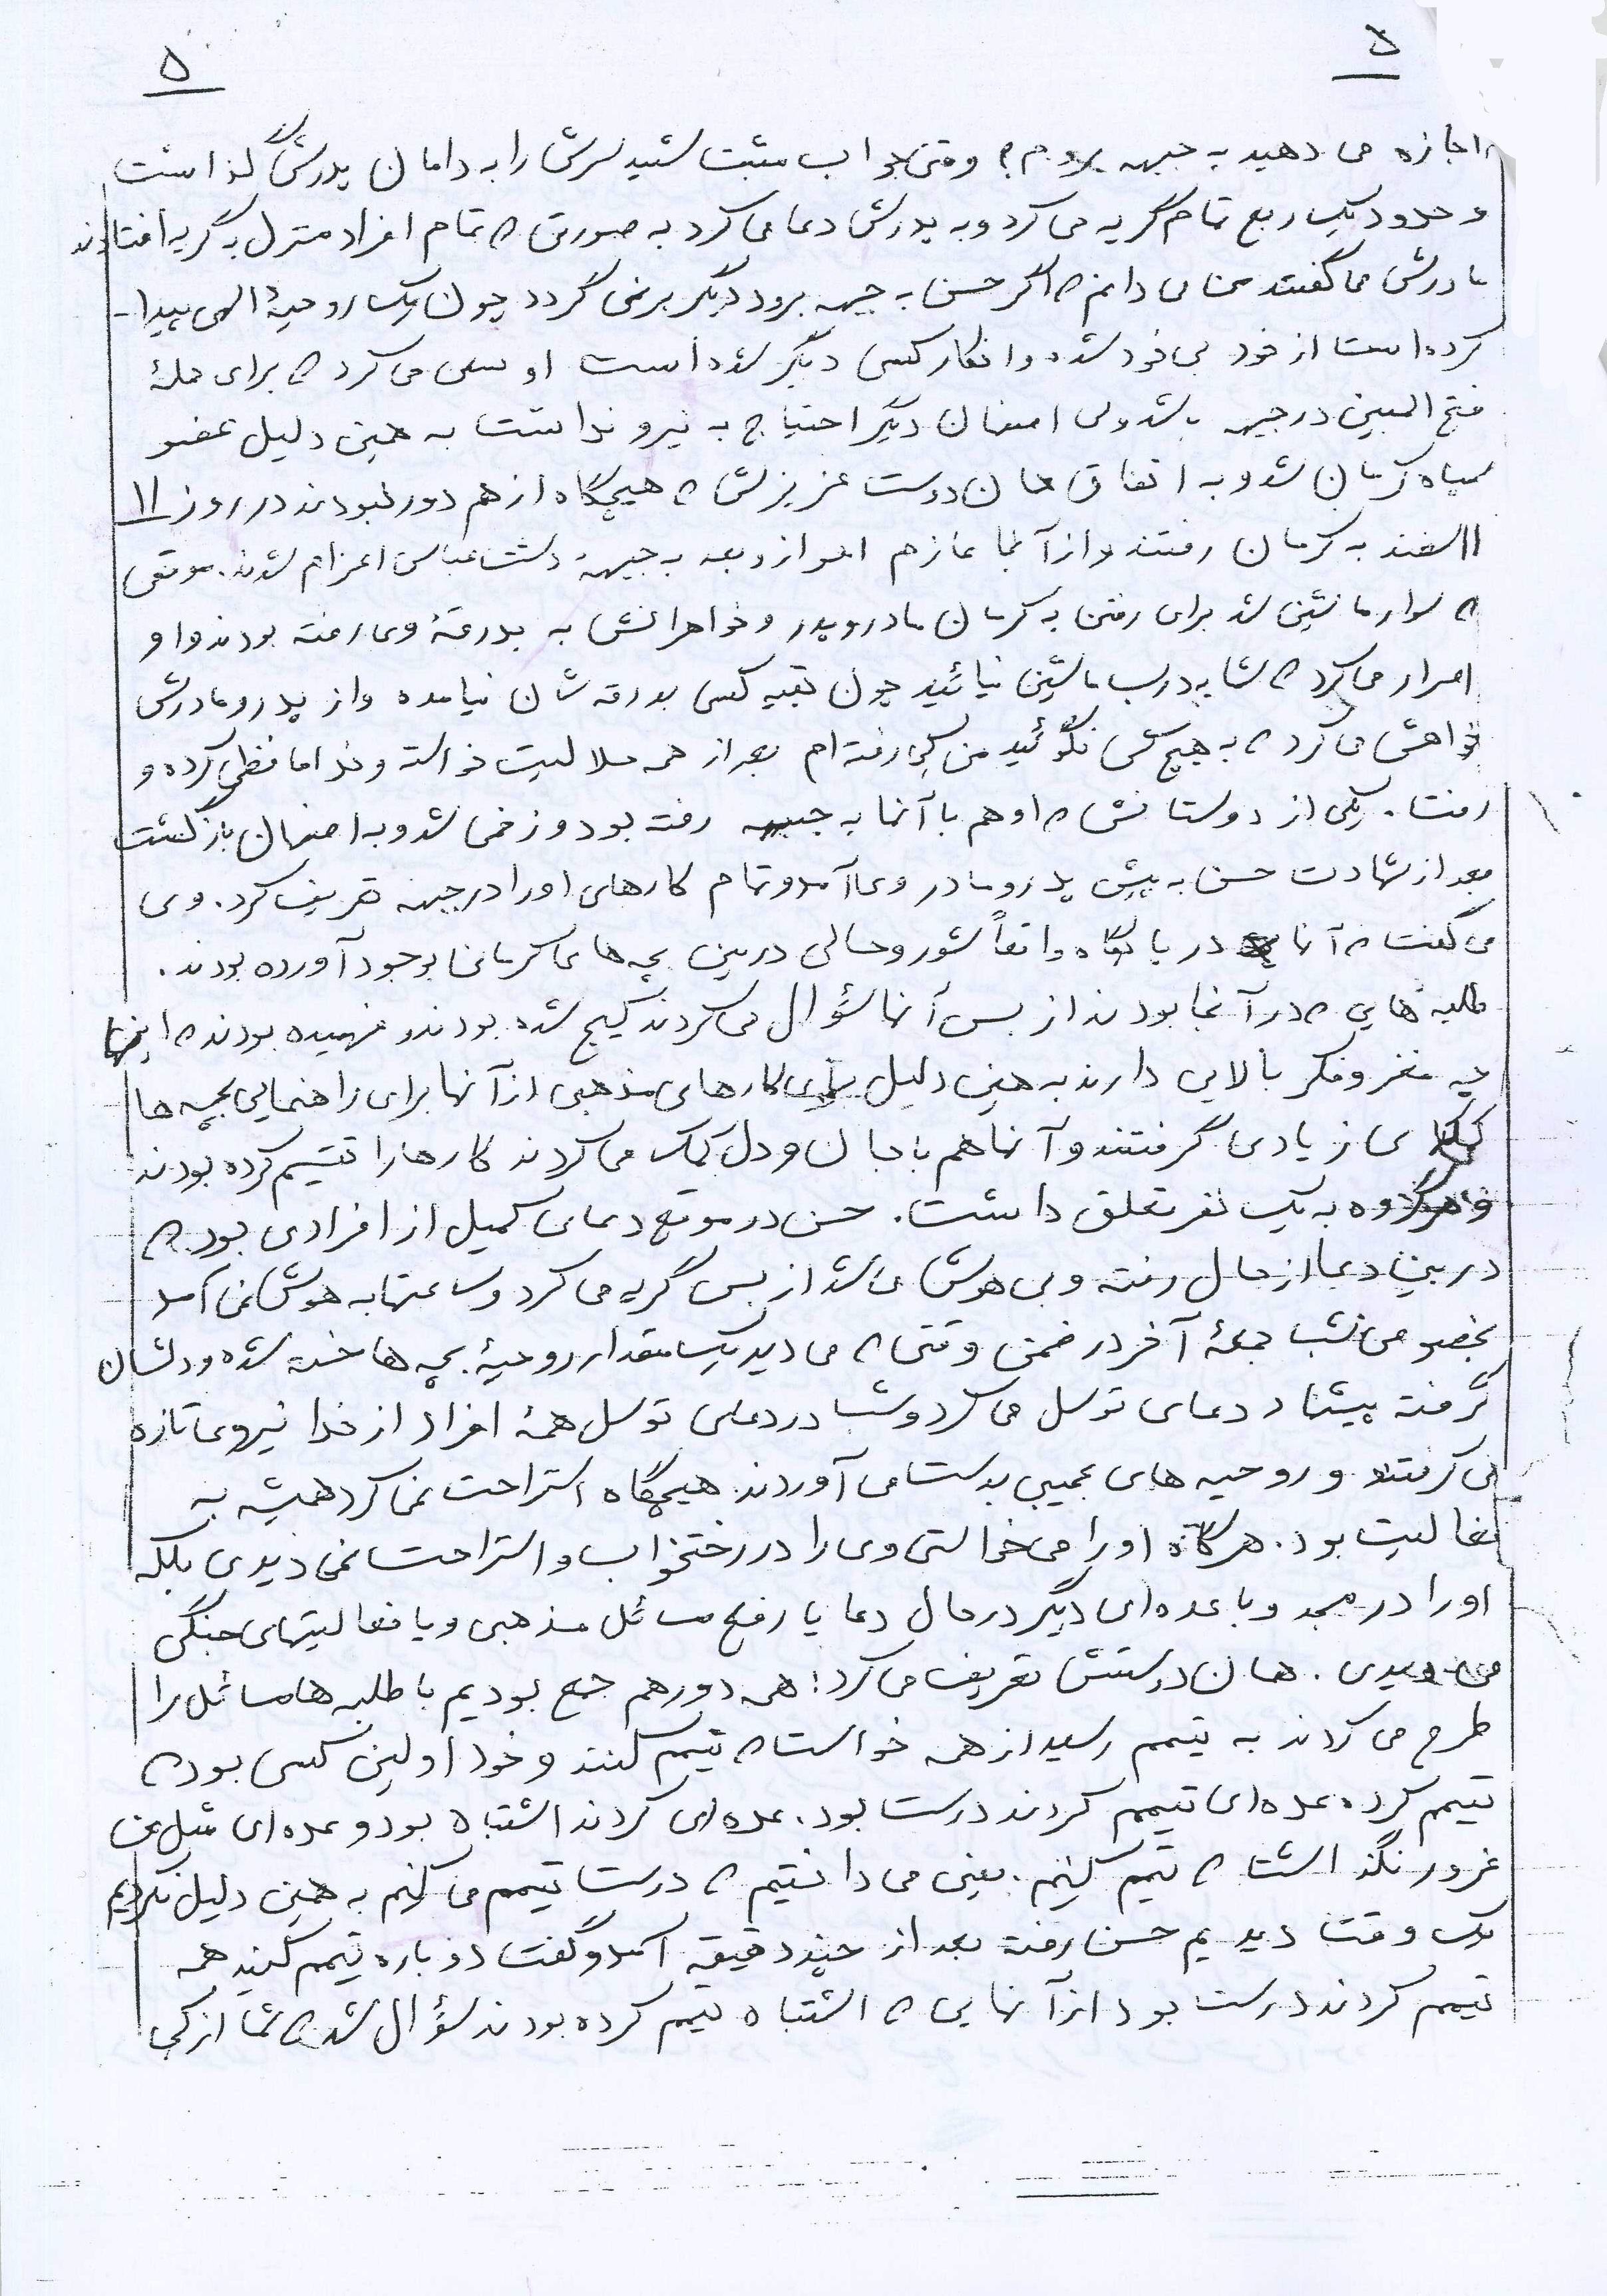 ۵
۵
اجازه می دهید به جبهه بروم؟ وقتی جواب مثبت شنید سرش را به دامان پدرش گذاشت
و حدود یک ربع تمام گریه می کرد و به پدرش دعا می کرد به صورتی که تمام افراد منزل به گریه افتادند
مادرش می گفت من می دانم که اگر حسن به جبهه برود دیگر برنمی گردد چون یک روحیهٔ الهی پیدا -
کرده است از خود بی خود شده و انگار کسی دیگر شده است او سعی می کرد که برای حملهٔ
فتح المبین در جبهه باشد ولی اصفهان دیگر احتیاج به نیرو نداشت به همین دلیل عضو
سپاه کرمان شد و به اتفاق همان دوست عزیزش که هیچگاه از هم دور نبودند در روز ۱۱
۱۱ اسفند به کرمان رفتند و از آنجا عازم اهواز و بعد به جبههٔ دشت عباس اعزام شدند. موقعی
که سوار ماشین شد برای رفتن به کرمان مادر و پدر و خواهرانش به بدرقهٔ وی رفته بودند و او
اصرار می کرد که شما به درب ماشین نیائید چون بقیه کسی بدرقه شان نیامده و از پدر و مادرش
خواهش می کرد که به هیچ کس نگوئید من کجا رفته ام بعد از همه حلالیت خواسته و خداحافظی کرده و
رفت. یکی از دوستانش که او هم با آنها به جبهه رفته بود و زخمی شد و به اصفهان بازگشت
بعد از شهادت حسن به پیش پدر و مادر وی آمد و تمام کارهای او را در جبهه تعریف کرد. وی
می گفت که آنها در پایگاه واقعاً شور و حالی در بین بچه های کرمانی بوجود آورده بودند.
طلبه هایی که در آنجا بودند از بس از آنها سؤال می کردند گیج شده بودند و فهمیده بودند که اینها
چه مغز و فکر بالایی دارند به همین دلیل برای کارهای مذهبی از آنها برای راهنمایی بچه ها
کمکهای زیادی گرفتند و آنها هم با جان و دل کمک می کردند کارها را تقسیم کرده بودند
و هر گروه به یک نفر تعلق داشت. حسن در موقع دعای کمیل از افرادی بود که
در بین دعا از حال رفته و بی هوش می شد از بس گریه می کرد و ساعتها به هوش نمی آمد
بخصوص شب جمعهٔ آخر در ضمن وقتی که می دید یک مقدار روحیهٔ بچه ها خسته شده و دلشان
گرفته پیشنهاد دعای توسل می کرد و شب در دعای توسل همهٔ افراد از خدا نیروی تازه
می گرفتند و روحیه های عجیبی بدست می آوردند. هیچگاه استراحت نمی کرد همیشه به
فعالیت بود. هرگاه او را می خواستی وی را در رختخواب و استراحت نمی دیدی بلکه
او را در مسجد و با عده ای دیگر در حال دعا یا رفع مسائل مذهبی و یا فعالیتهای جنگی
می دیدی. همان دوستش تعریف می کرد: همه دور هم جمع بودیم با طلبه ها مسائل را
طرح می کردند به تیمم رسید از همه خواست که تیمم کنند و خود اولین کسی بود که
تیمم کرد. عده ای تیمم کردند درست بود. عده ای کردند اشتباه بود و عده ای مثل من
غرور نگذاشت که تیمم کنیم. یعنی می دانستیم که درست تیمم می کنیم به همین دلیل نکردیم
یک وقت دیدیم حسن رفته بعد از چند دقیقه آمد و گفت دوباره تیمم کنید همه
تیمم کردند درست بود از آنهایی که اشتباه تیمم کرده بودند سؤال شد که شما از کی